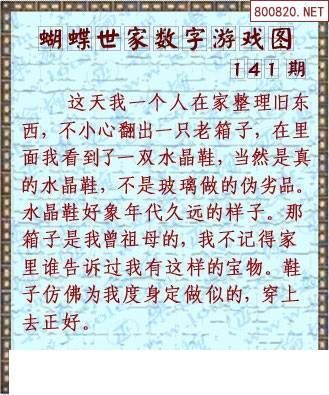 800820.NET
蝴蝶世家数字游戏图
141期
这天我一个人在家整理旧东
西，不小心翻出一只老箱子，在里
面我看到了一双水晶鞋，当然是真
的水晶鞋，不是玻璃做的伪劣品。
水晶鞋好象年代久远的样子。那
箱子是我曾祖母的，我不记得家
里谁告诉过我有这样的宝物。鞋
子仿佛为我度身定做似的，穿上
去正好。